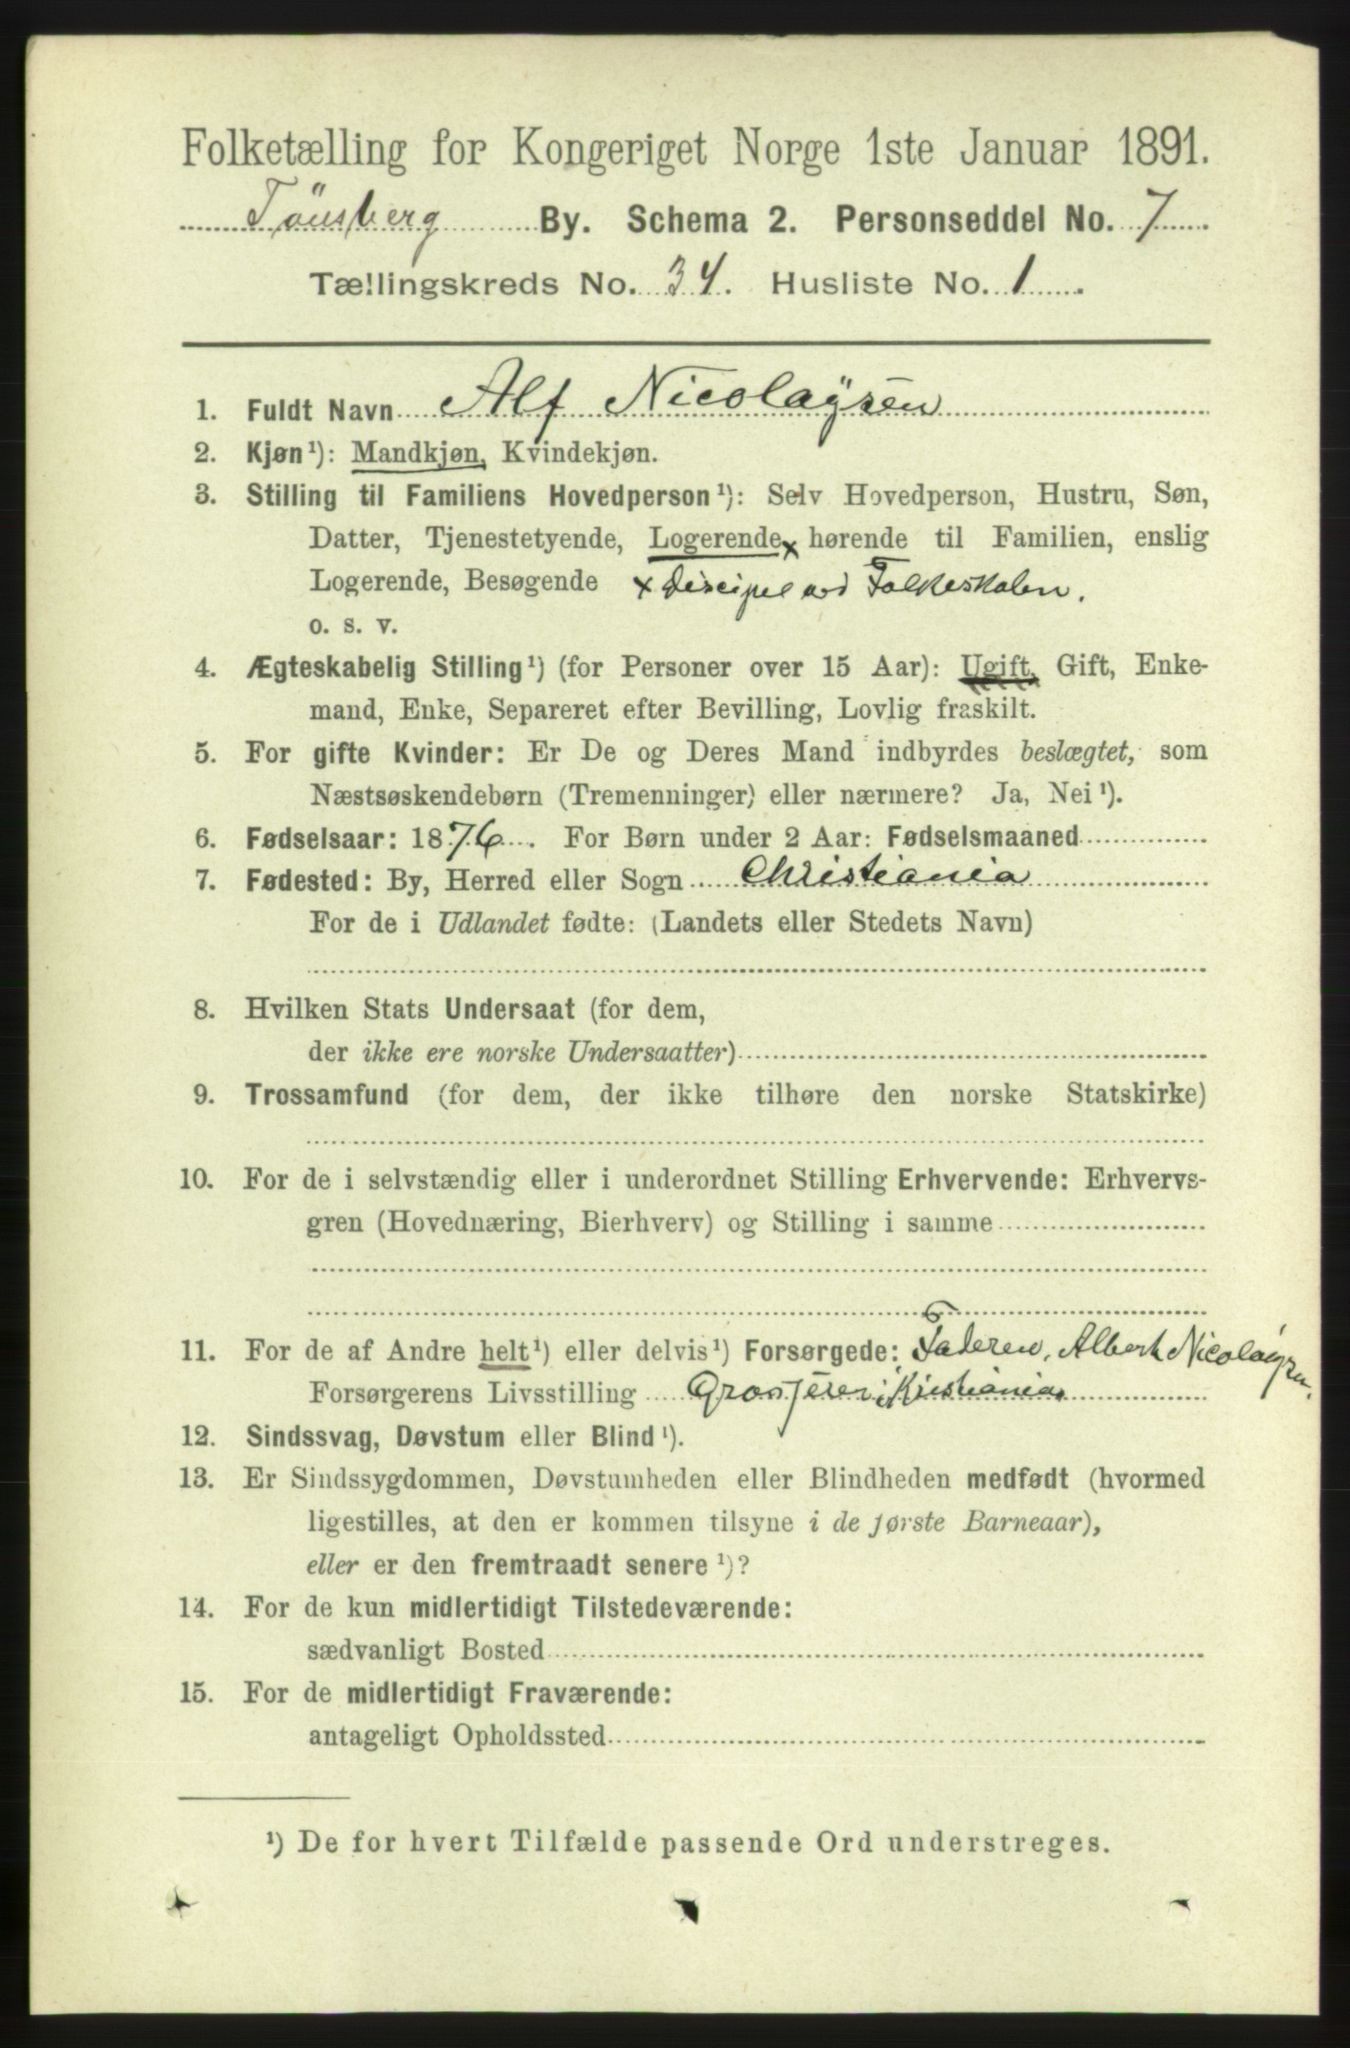 Folketælling for Kongeriget Norge 1ste Januar 1891.
Tönsberg By. Schema 2. Personseddel No. 7
Tællingskreds No. 34. Husliste No. 1
1. Fuldt Navn Alf Nicolaÿsen
2. Kjøn¹): Mandkjøn, Kvindekjøn.
3. Stilling til Familiens Hovedperson¹): Selv Hovedperson, Hustru, Søn,
Datter, Tjenestetyende, Logerende x hørende til Familien, enslig
Logerende, Besøgende x Discipel ved Folkeskolen.
o. s. v.
4. Ægteskabelig Stilling¹) (for Personer over 15 Aar): Ugift, Gift, Enke-
mand, Enke, Separeret efter Bevilling, Lovlig fraskilt.
5. For gifte Kvinder: Er De og Deres Mand indbyrdes beslægtet, som
Næstsøskendebørn (Tremenninger) eller nærmere? Ja, Nei¹).
6. Fødselsaar: 1876. For Børn under 2 Aar: Fødselsmaaned
7. Fødested: By, Herred eller Sogn Christiania
For de i Udlandet fødte: (Landets eller Stedets Navn)
8. Hvilken Stats Undersaat (for dem,
der ikke ere norske Undersaatter)
9. Trossamfund (for dem, der ikke tilhøre den norske Statskirke)
10. For de i selvstændig eller i underordnet Stilling Erhvervende: Erhvervs-
gren (Hovednæring, Bierhverv) og Stilling i samme
11. For de af Andre helt¹) eller delvis¹) Forsørgede: Faderen, Albert Nicolaÿsen.
Forsørgerens Livsstilling Grosserer i Kristiania
12. Sindssvag, Døvstum eller Blind¹).
13. Er Sindssygdommen, Døvstumheden eller Blindheden medfødt (hvormed
ligestilles, at den er kommen tilsyne i de første Barneaar),
eller er den fremtraadt senere¹)?
14. For de kun midlertidigt Tilstedeværende:
sædvanligt Bosted
15. For de midlertidigt Fraværende:
antageligt Opholdssted
¹) De for hvert Tilfælde passende Ord understreges.